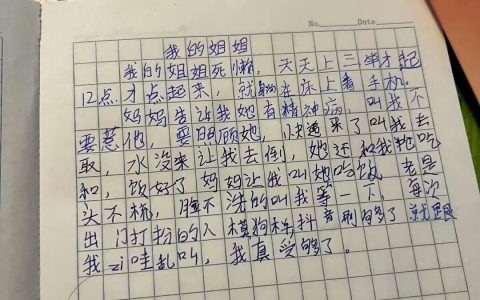 No.
Date
我的姐姐
我的姐姐死懒，天天上三竿才起
12点才点起来，就躺在床上看手机.
妈妈告诉我她有精神病，叫我不
要惹他，要照顾她，快起来了叫我去
取，水没来让我去倒，她还和我抢吃
和，饭好了妈妈让我叫她吃饭，老是
头不梳，脸不洗的叫我等一下，每次
出门打扮的人模狗样抖音刷多了就跟
我zi哇乱叫，我真受够了.